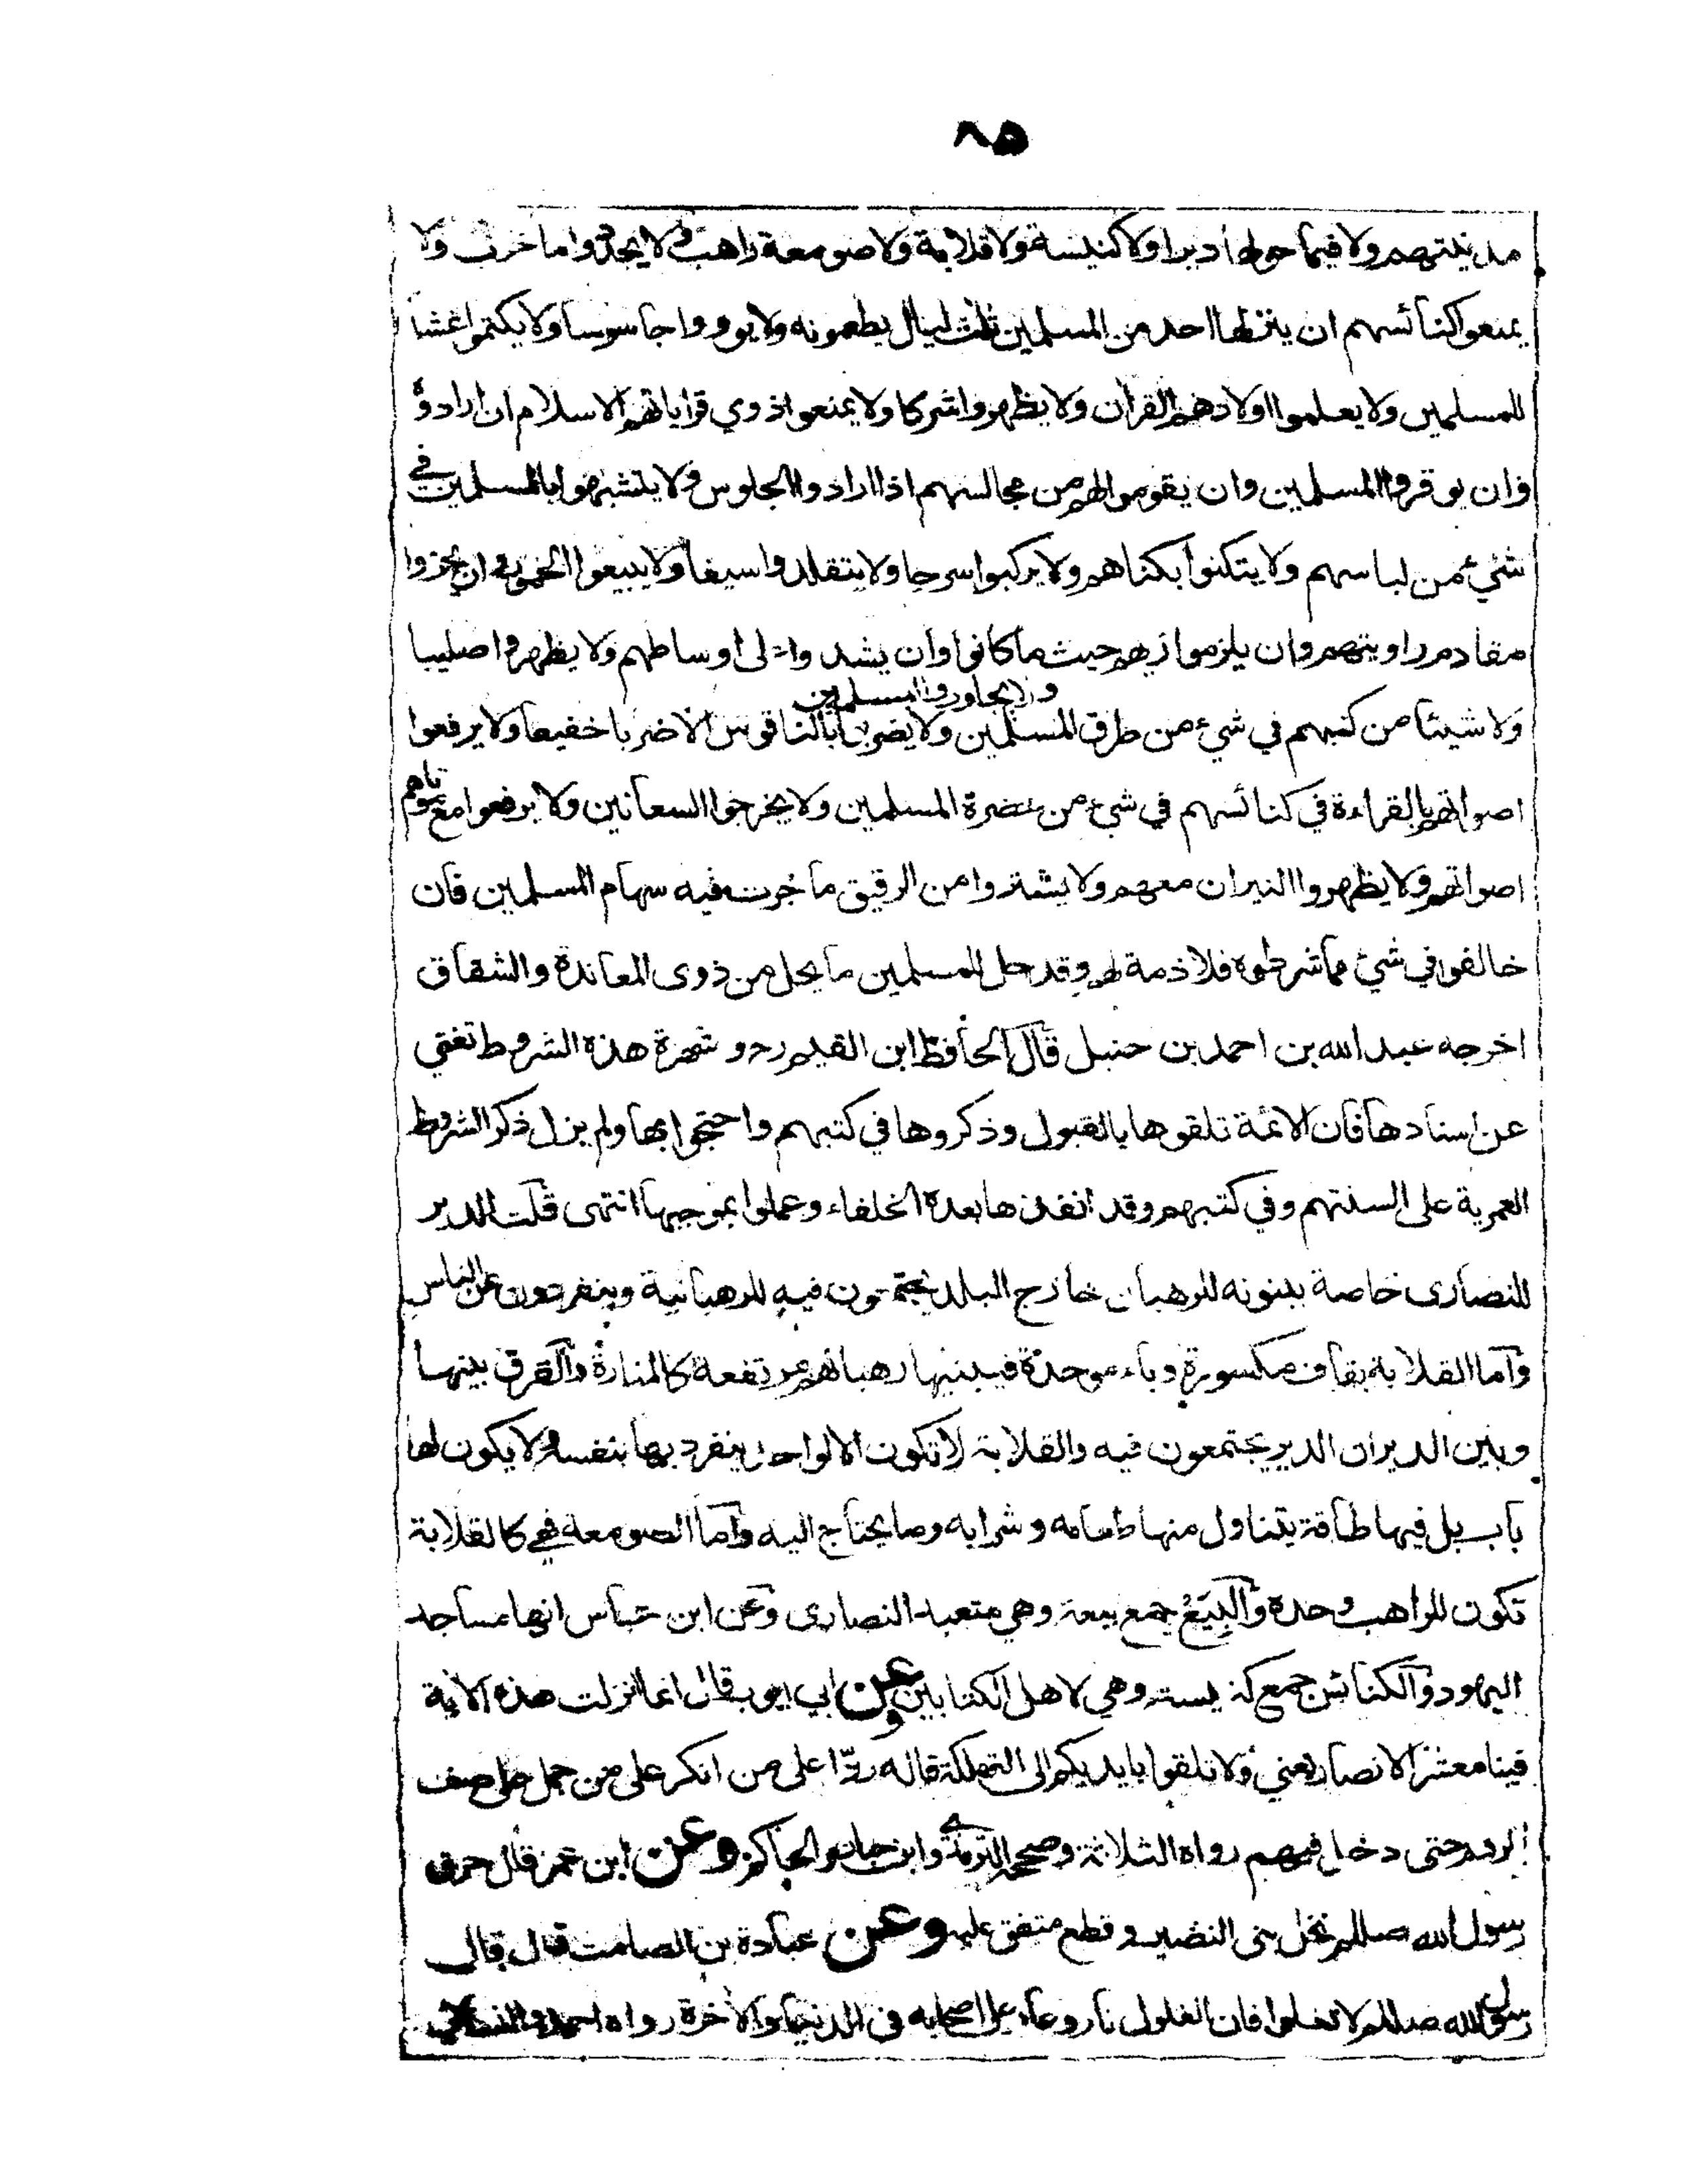 ٨٥
مدينتهم ولا فيما حولها ديرا ولا كنيسة ولا قلابة ولا صومعة راهب ولا يجددوا ما خرب ولا
يمنعوا كنائسهم ان ينزلها احد من المسلمين ثلث ليال يطعمونه ولا يووا جاسوسا ولا يكتموا غشا
للمسلمين ولا يعلموا اولادهم القرآن ولا يظهروا شركا ولا يمنعوا ذوي قراباتهم الاسلام ان ارادوه
وان يوقروا المسلمين وان يقوموا لهم من مجالسهم اذا ارادوا الجلوس ولا يتشبهوا بالمسلمين في
شيء من لباسهم ولا يتكنوا بكناهم ولا يركبوا سرجا ولا يتقلدوا سيفا ولا يبيعوا الخمور وان يجزوا
مقادم رؤسهم وان يلزموا زيهم حيث ما كانوا وان يشدوا على اوساطهم ولا يظهروا صليبا
ولا يجاوروا المسلمين
ولا شيئا من كتبهم في شيء من طرق المسلمين ولا يضربوا بالناقوس الا ضربا خفيفا ولا يرفعوا
اصواتهم بالقراءة في كنائسهم في شيء من حضرة المسلمين ولا يخرجوا السعانين ولا يرفعوا مع موتاهم
اصواتهم ولا يظهروا النيران معهم ولا يشتروا من الرقيق ما جرت فيه سهام المسلمين فان
خالفوا في شيء مما شرطوه فلا ذمة لهم وقد حل للمسلمين ما يحل من ذوى المعاندة والشقاق
اخرجه عبد الله بن احمد بن حنبل قال الحافظ ابن القيم رح و شهرة هذه الشروط تغني
عن اسنادها فان الائمة تلقوها بالقبول وذكروها في كتبهم واحتجوا بها ولم يزل ذكر الشروط
العمرية على السنتهم وفي كتبهم وقد انفذها بعده الخلفاء وعملوا بموجبها انتهى قلت الدير
للنصارى خاصة يبنونه للرهبان خارج البلد يجتمعون فيه للرهبانية وينفردون عن الناس
وآما القلابة بقاف مكسورة وباء موحدة فيبنيها رهبانهم مرتفعة كالمنارة والفرق بينها
وبين الدير ان الدير يجتمعون فيه والقلابة لا تكون الا لواحد ينفرد بها بنفسه ولا يكون لها
باب بل فيها طاقة يتناول منها طعامه و شرابه وما يحتاج اليه وآما الصومعة فهي كالقلابة
تكون للراهب وحده والبيع جمع بيعة وهي متعبد النصارى وعن ابن عباس انها مساجد
اليهود والكنائس جمع كنيسة وهي لاهل الكتابين وعن ابي ايوب قال انما انزلت هذه الآية
فينا معشر الانصار يعني ولا تلقوا بايديكم الى التهلكة قاله ردّا على من انكر على من حمل على صف
الروم حتى دخل فيهم رواه الثلاثة وصححه الترمذي وابن حبان والحاكم وعن ابن عمر قال حرق
رسول الله صللم نخل بنى النضير و قطع متفق عليه وعن عبادة بن الصامت قال قال
رسول الله صللم لا تغلوا فان الغلول نار وعار على اصحابه في الدنيا والآخرة رواه احمد والنسائي